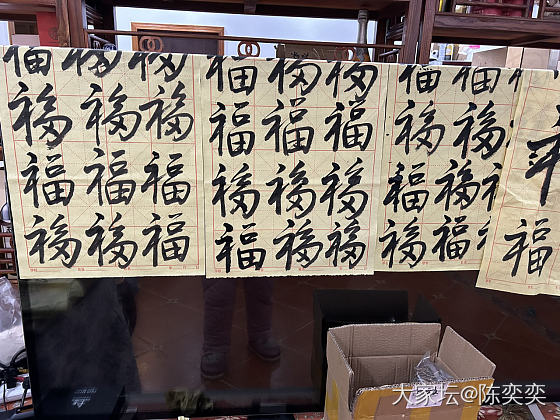 福福福 福福福 福福
福福福 福福福 福福
福福福 福福福 福福
福福福 福福福 福福 福
大家坛@陈奕奕